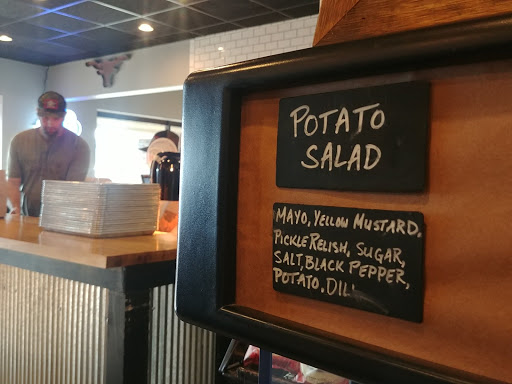 POTATO
SALAD
MAYO, YELLOW MUSTARD,
PICKLE RELISH, SUGAR,
SALT, BLACK PEPPER,
POTATO, DILL